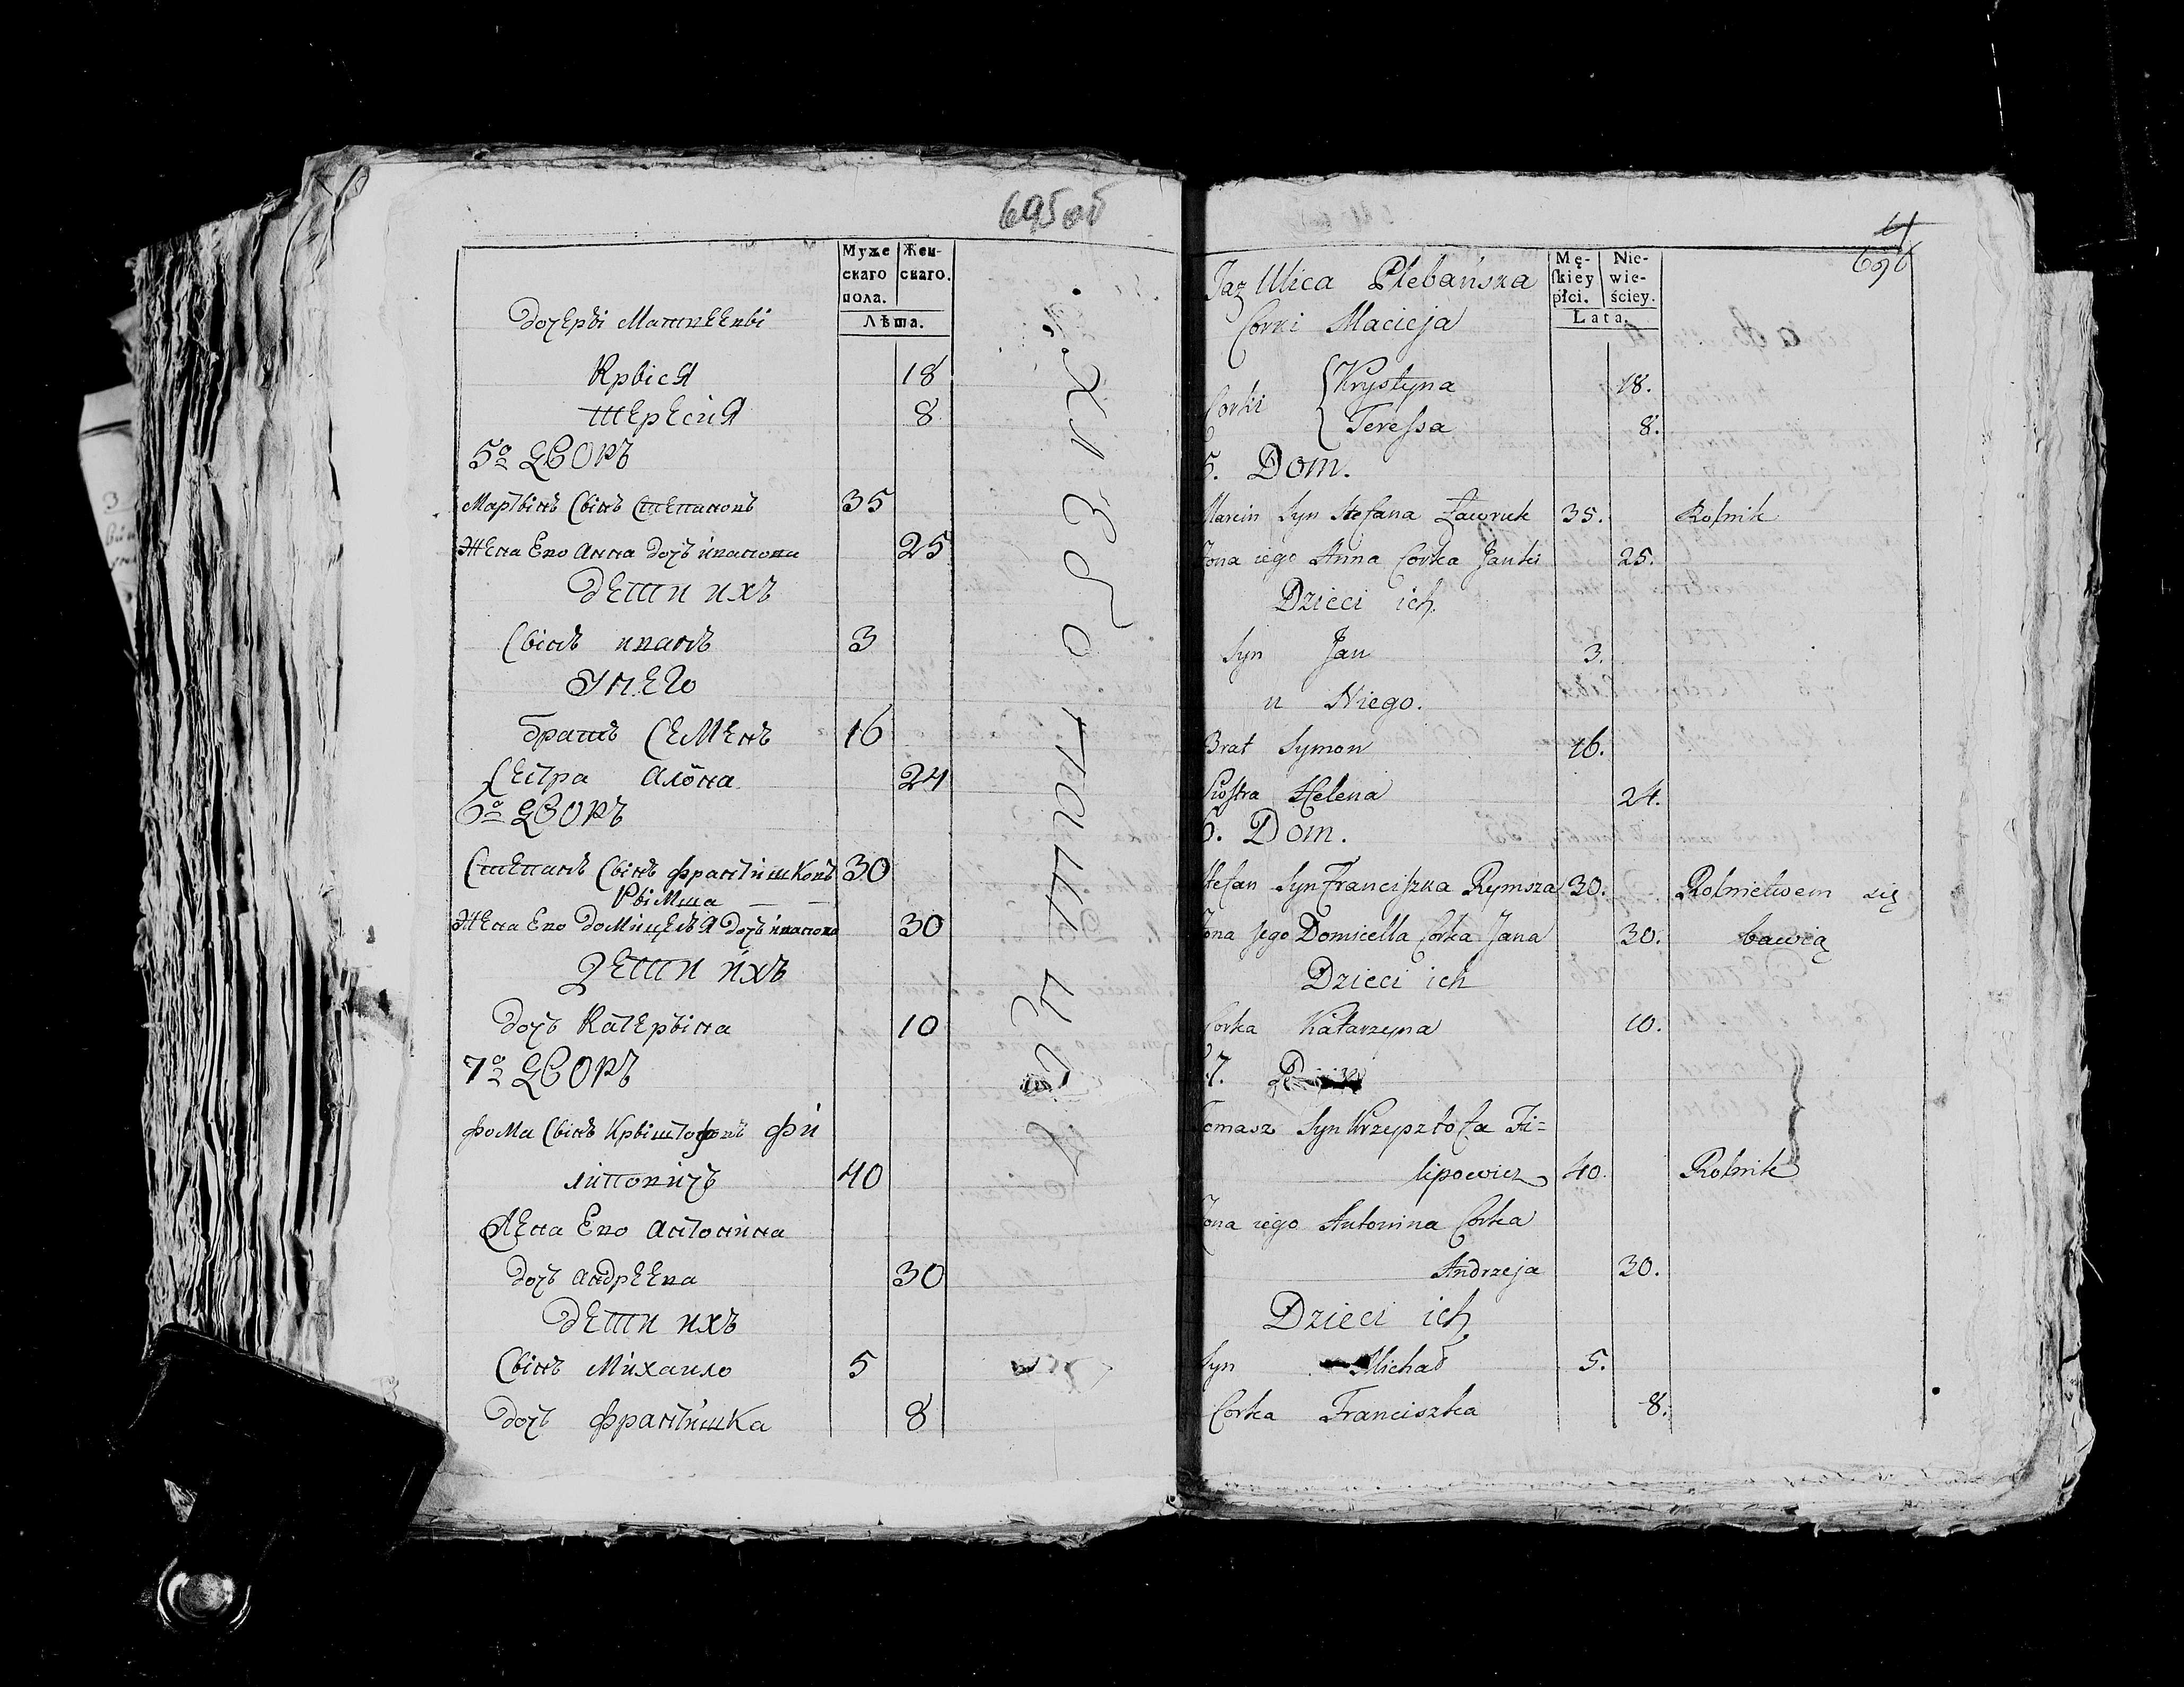 695 об
Муже
скаго
пола.
Жен-
скаго.
Лѣта.
Дочерѣ Матвеевы
Крыся 18
Тересия 8
5о Дворъ
Мартынъ Сынъ Степановъ 35
Жена Ево Анна дочь ивапова 25
Дети ихъ
Сынъ иванъ 3
У него
братъ Семенъ 16
Сестра Алёна 24
6о Дворъ
Степанъ Сынъ Франтишковъ 30
Рымша
Жена Ево Домицеля дочь иванова 30
Дети ихъ
дочь Катерына 10
7о Дворъ
Фома Сынъ Крыштофовъ Фи
липовичъ 40
Жена Ево Антонина
дочь Андреева 30
Дети ихъ
Сынъ Михаило 5
дочь Франтишка 8
696
Mę-
skiey
płci.
Nie-
wie-
ściey.
Lata.
Ulica Plebańska
Corki Macieja
Corki Krystyna 18.
Teressa 8.
5. Dom.
Marcin Syn Stefana Ławruk 35. Rolnik
Żona iego Anna Corka Janki 25.
Dzieci ich
Syn Jan 3.
u Niego.
Brat Symon 16.
Siostra Helena 24.
6. Dom.
Stefan Syn Franciszka Rymsza 30. Rolnictwem się
Żona Jego Domicella Corka Jana 30. bawią
Dzieci ich
Corka Katarzyna 10.
7.
Tomasz Syn Krzysztofa Fi=
lipowicz 40. Rolnik
Żona iego Antonina Corka
Andrzeja 30.
Dzieci ich
Syn Michał 5.
Corka Franciszka 8.